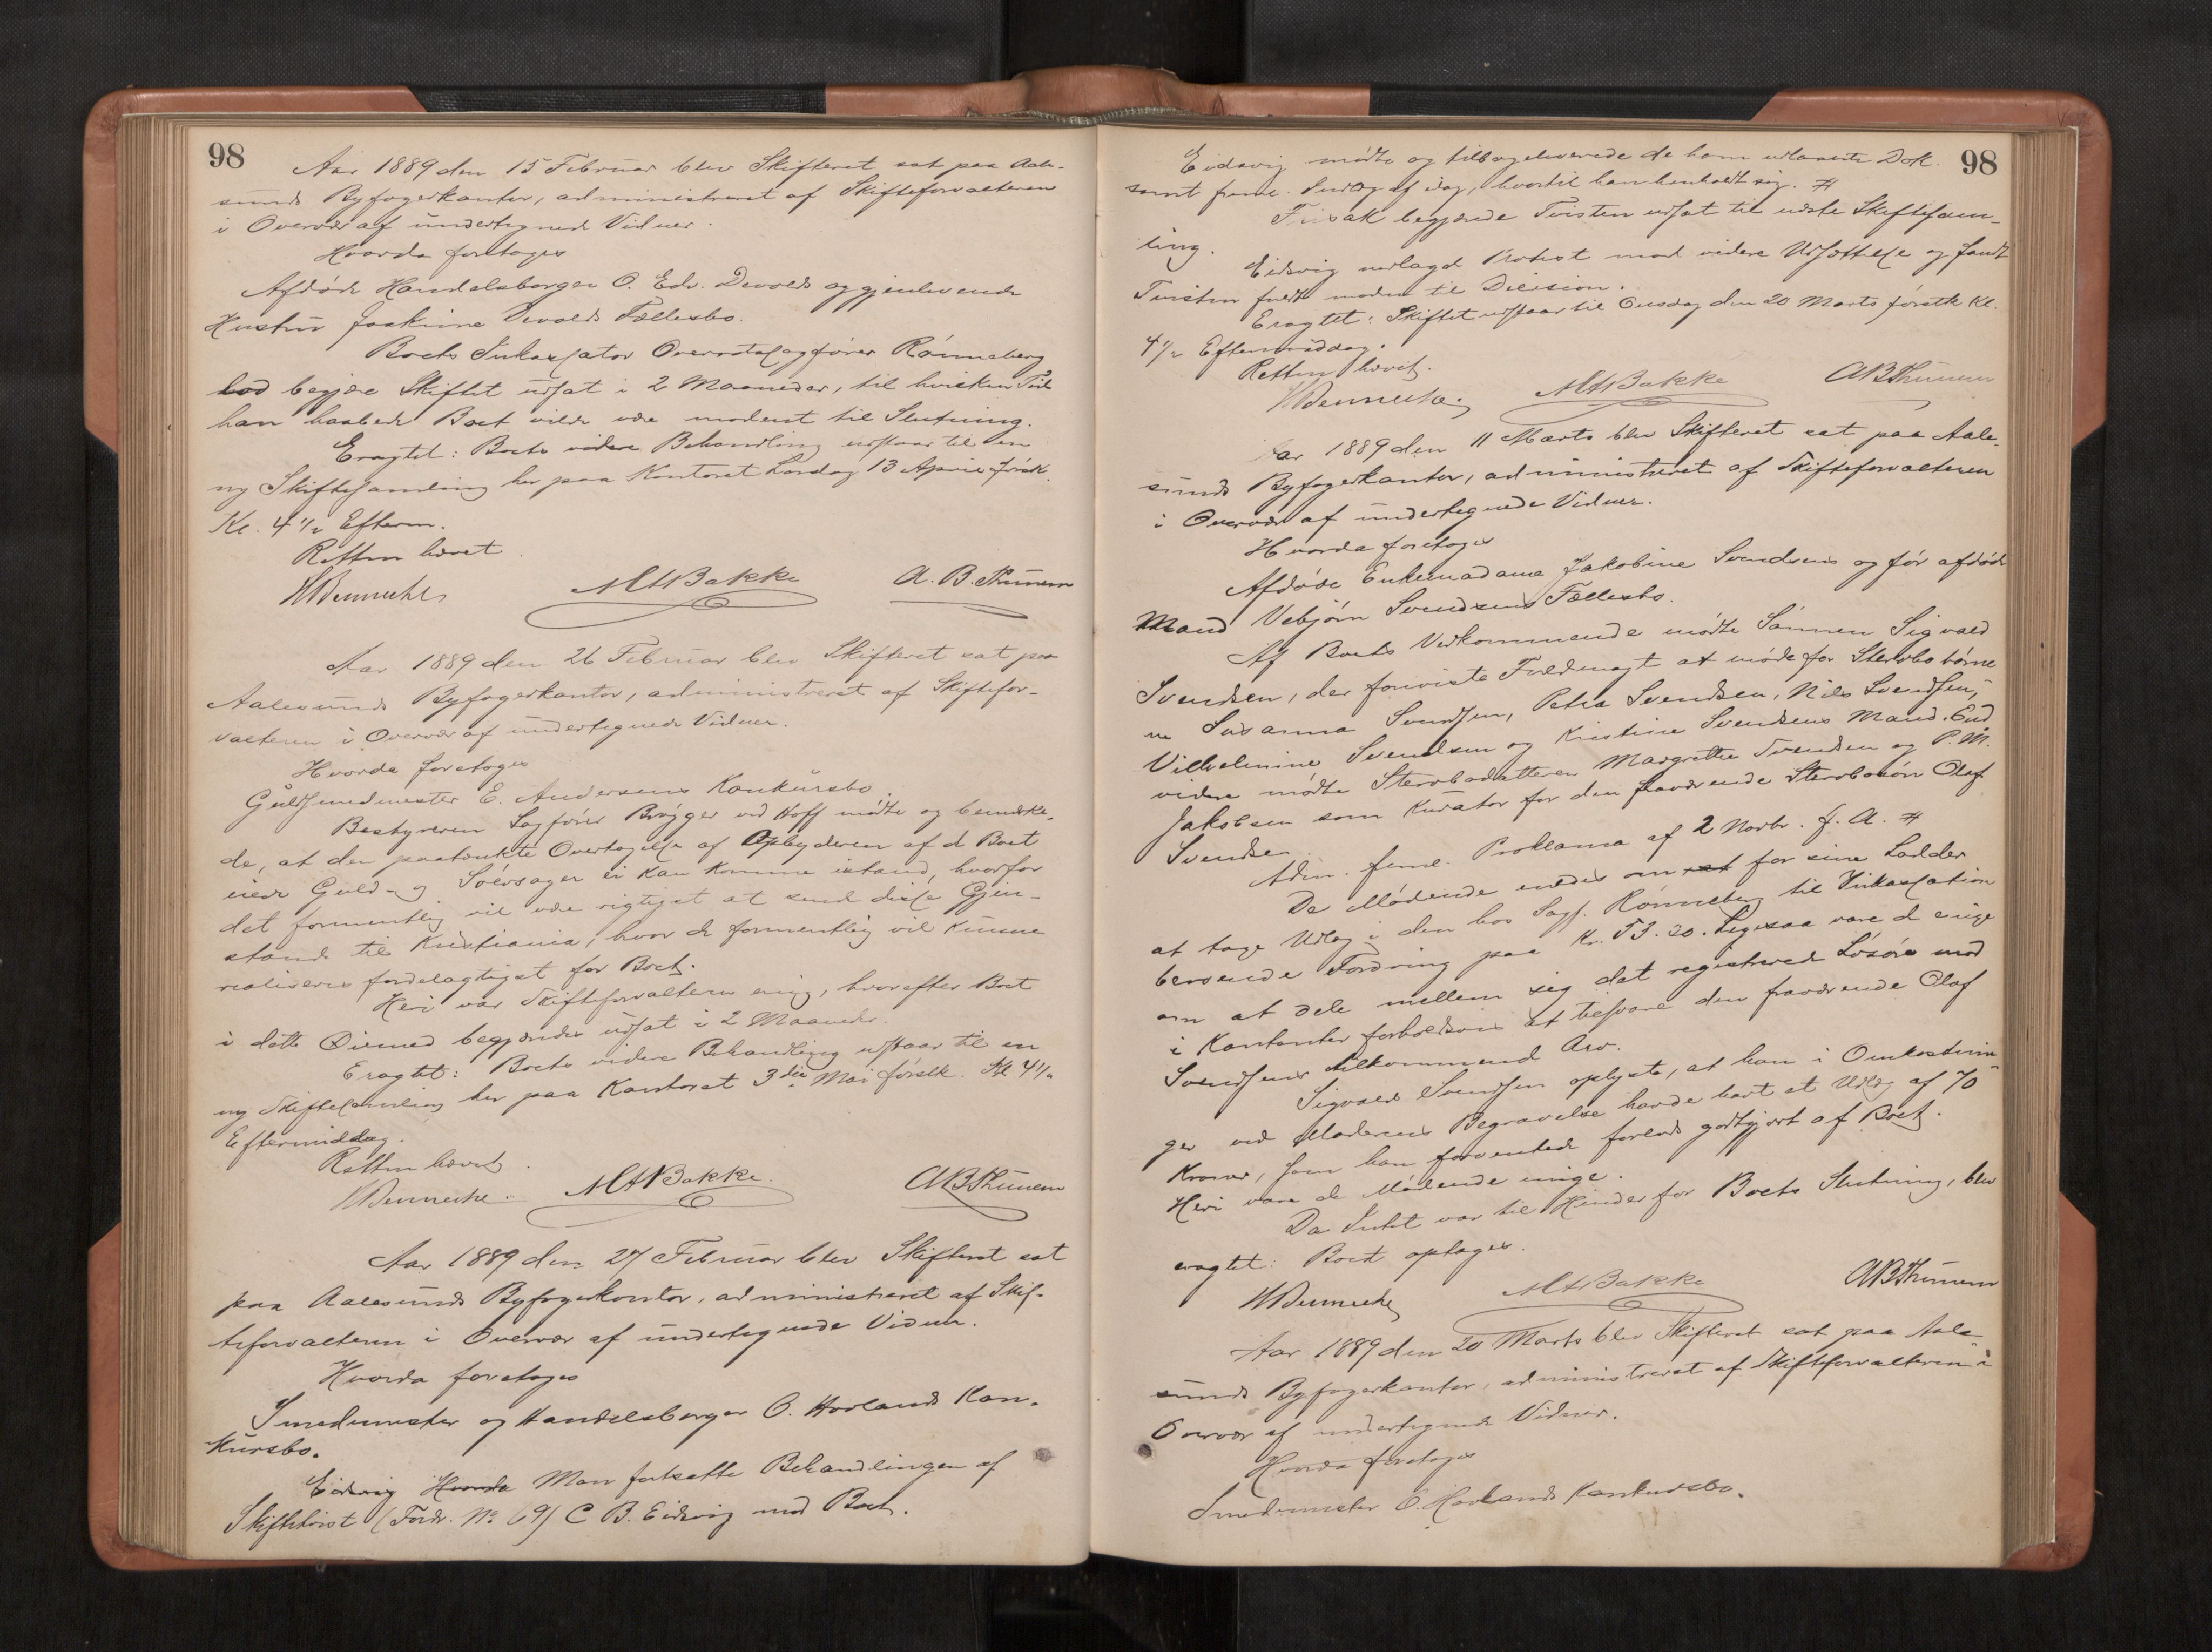 98
Aar 1889 den 15 Februar blev Skifteret sat paa Aale-
sunds Byfogedkontor, administreret af Skifteforvalteren
i Overvær af undertegnede Vidner.
Hvorda foretoges
Afdøde Handelsborger O. Edv. Devolds og gjenlevende
Hustru Joakime Devolds Fællesbo.
Boets Inkassator Overretssagfører Rønneberg
lod begjære Skiftet udsat i 2 Maaneder, til hvilken Tid
han haabede Boet vilde være modent til Slutning.
Eragtet: Boets videre Behandling udstaar til en
ny Skiftesamling her paa Kontoret Lørdag 13 April førstk.
Kl. 4 1/2 Efterm.
Retten hævet.
MABakke A. B. Thunem
Aar 1889 den 26 Februar blev Skifteret sat paa
Aalesunds Byfogedkontor, administreret af Skiftefor-
valteren i Overvær af undertegnede Vidner.
Hvorda foretoges
Guldsmedmester E. Andersens Konkursbo.
Bestyreren Sagfører Brøgger ved Hoff mødte og bemærke-
de, at den paatænkte Overtagelse af Opbyderen af d Boet
eiede Guld- og Sølvsager ei kan komme istand, hvorfor
det formentlig vil være rigtigst at sende disse Gjen-
stande til Kristiania, hvor de formentlig vil kunne
realiseres fordelagtigst for Boet.
Heri var Skifteforvalteren enig, hvorefter Boet
i dette Øiemed begjærdes udsat i 2 Maaneder.
Eragtet: Boets videre Behandling udstaar til en
ny Skiftesamling her paa Kontoret 3die Mai førstk. Kl 4 1/2
Eftermiddag.
Retten hævet.
MABakke. ABThunem
Aar 1889 den 27 Februar blev Skifteret sat
paa Aalesunds Byfogedkontor, administreret af Skif-
teforvalteren i Overvær af undertegnede Vidner.
Hvorda foretoges
Smedemester og Handelsborger O. Hovlands Kon-
kursbo.
Eidsvig Hvorda Man fortsatte Behandlingen af
Skiftetvist (Fordr. No 69) C B. Eidsvig mod Boet.
98
Eidsvig mødte og tilbageleverede de ham udlaante Dok.
samt freml. Indlæg af idag, hvortil han henholdt sig. #
Frisak begjærede Tvisten udsat til næste Skiftesam-
ling.
Eidsvig nedlagde Protest mod videre Udsættelse og fandt
Tvisten fuldt moden til Decision.
Eragtet: Skiftet udstaar til Onsdag den 20 Marts førstk Kl.
4 1/2 Eftermiddag.
Retten hævet.
MABakke ABThunem
Aar 1889 den 11 Marts blev Skifteret sat paa Aale-
sunds Byfogedkontor, administreret af Skifteforvalteren
i Overvær af undertegnede Vidner.
Hvorda foretoges
Afdøde Enkemadame Jakobine Svendsens og før afdøde
Mand Vebjørn Svendsens Fællesbo.
Af Boets Vedkommende mødte Sønnen Sigvald
Svendsen, der foreviste Fuldmagt at møde for Stervbobørne-
ne Susanna Svendsen, Petra Svendsen, Nils Svendsen,
Vilhelmine Svendsen og Kristine Svendsens Mand. End
videre mødte Stervbodatteren Margrethe Svendsen og P. M.
Jakobsen som Kurator for den fraværende Stervbosøn Olaf
Svendsen.
Adm. freml. Proklama af 2 Novbr. f. A. #
De Mødende enedes om ret for sine Lodder
at tage Udlæg i den hos Sagf. Rønneberg til Inkassation
beroende Fordring paa Kr. 53.20. Ligesaa vare de enige
om at dele mellem sig det registrerede Løsøre mod
i Kontanter forholdsvis at tilsvare den fraværende Olaf
Svendsens tilkommende Arv.
Sigvald Svendsen oplyste, at han i Omkostnin-
ger ved Moderens Begravelse havde havt et Udlæg af 70
Kroner, som han forventede forlods godtgjort af Boet.
Heri vare de Mødende enige.
Da Intet var til Hinder for Boets Slutning, blev
eragtet: Boet optages.
MABakke ABThunem
Aar 1889 den 20 Marts blev Skifteret sat paa Aale-
sunds Byfogedkontor, administreret af Skifteforvalteren i
Overvær af undertegnede Vidner.
Hvorda foretoges
Smedemester O. Hovlands Konkursbo.